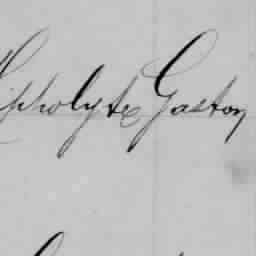 Hippolyte Gaston